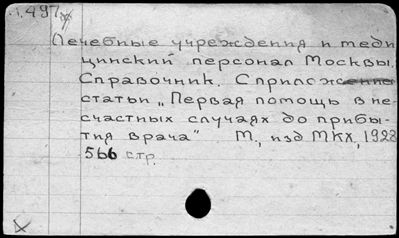 Лечебные учреждения и меди
цинский персонал Москвы.
Справочник. С приложением
статьи „Первая помощь в не-
счастных случаях до прибы-
тия врача" М., изд МКХ, 1928
566 стр.